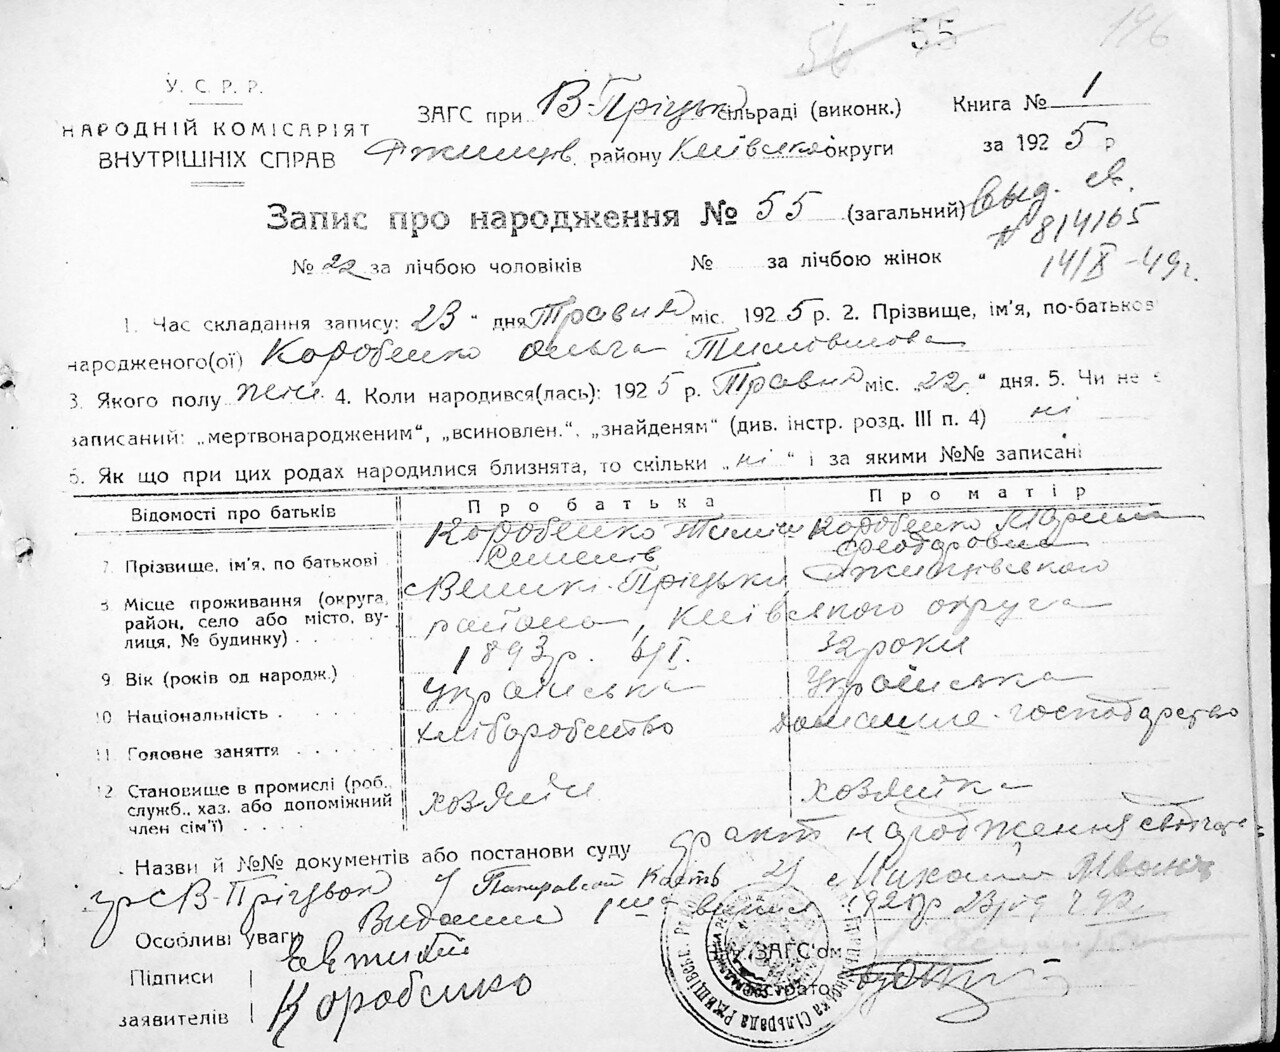 56 55 196
У. С. Р. Р.
НАРОДНІЙ КОМІСАРІЯТ
ВНУТРІШНІХ СПРАВ
ЗАГС при В-Пріцьк сільраді (виконк.)
Ржищів. району Київськ округи
Книга № 1
за 1925 р
Запис про народження № 55 (загальний)
Выд. св.
№ 814165
14/X-49г.
№ 22 за лічбою чоловіків № за лічбою жінок
1. Час складання запису: 23 " дня Травня міс. 1925 р. 2. Прізвище, ім'я, по-батькові
народженого(ої) Коробенко Ольга Тимішова
3. Якого полу жін. 4. Коли народився(лась): 1925 р. Травня міс. „22" дня. 5. Чи не є
записаний: „мертвонародженим", „всиновлен.", „знайденям" (див. інстр. розд. III п. 4) ні
6. Як що при цих родах народилися близнята, то скільки „ні" і за якими №№ записані
Відомості про батьків Про батька Про матір
7. Прізвище, ім'я, по батькові Коробенко Тиміш Семенів Коробенко Марина Феодоровна
8. Місце проживання (округа, район, село або місто, вулиця, № будинку) с Великі-Пріцьки Ржищівського
района, Київського округа
9. Вік (років од народж.) 1893 р. 6/I. 32 роки
10 Національність Українська Українська
11. Головне заняття хліборобство домашнє-господарство
12 Становище в промислі (роб., служб., хаз. або допоміжний член сім'ї) хозяїн хозяйка
Назви й №№ документів або постанови суду факт народження
гр с В-Пріцьок Кость Микоали Іван
Особливі уваги Видання
Підписи Євтихій
заявителів Коробенко
ЗАГС'ом